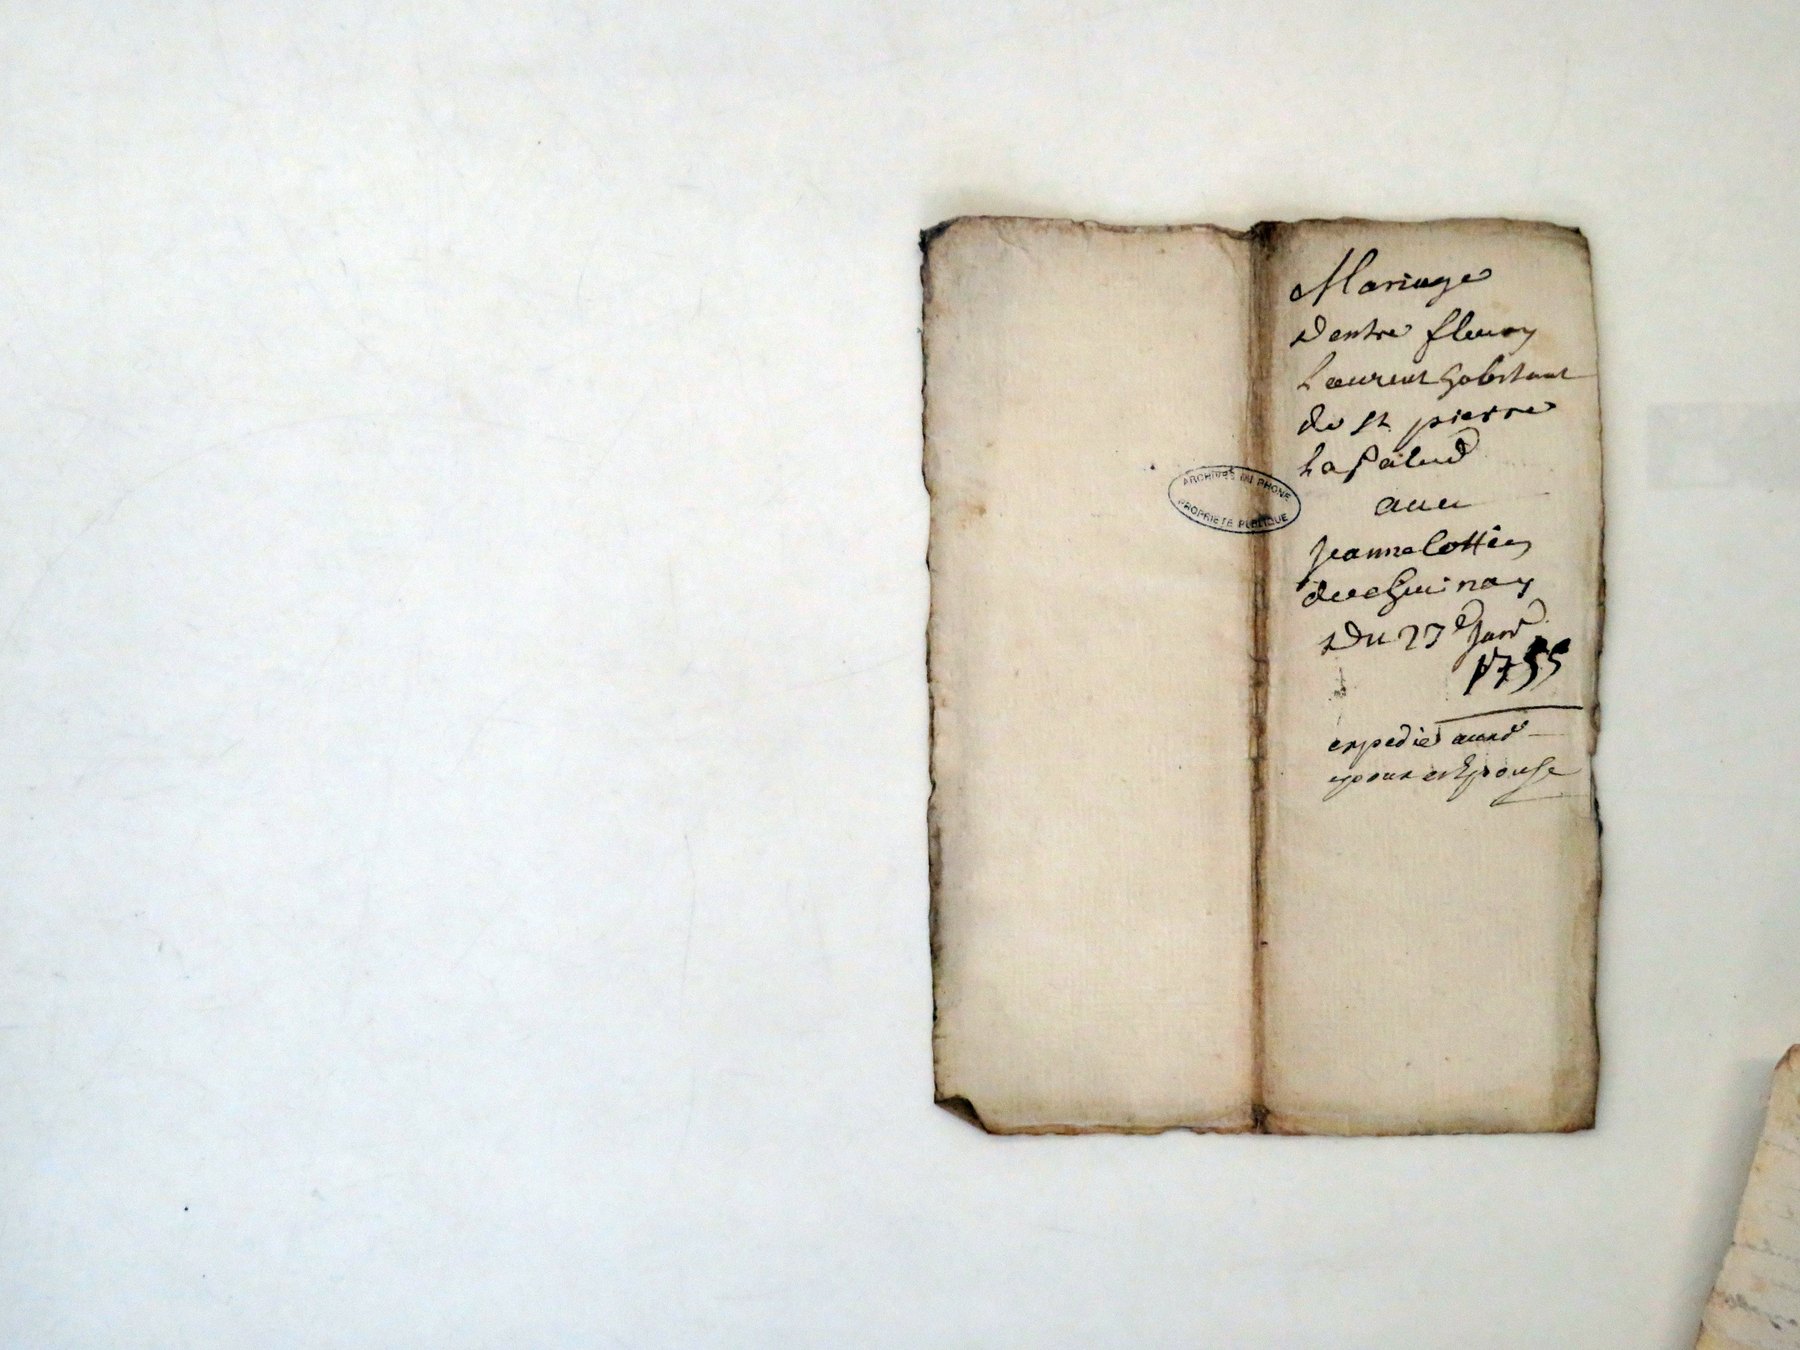 Mariage
dentre fleury
Laurent habitant
de st pierre
La Palud
avec
Jeanne Cottin
du 27e Janv
1755
expedié auxd
epoux et Epouse
ARCHIVES DU RHONE
PROPRIETE PUBLIQUE